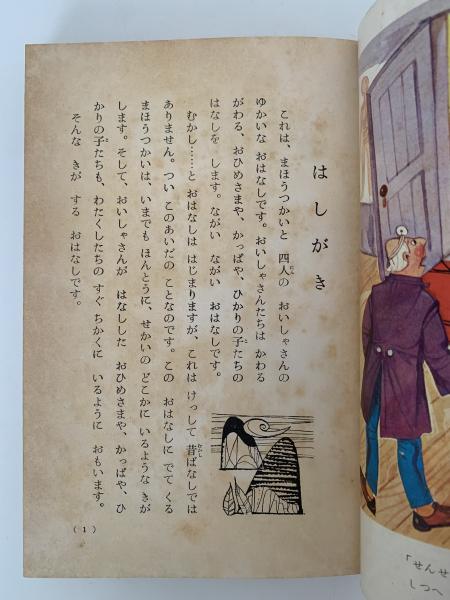 はしがき
これは、まほうつかいと 四人の おいしゃさんの
ゆかいな おはなしです。おいしゃさんたちは かわる
がわる、おひめさまや、かっぱや、ひかりの子たちの
はなしを します。ながい ながい おはなしです。
むかし……と おはなしは はじまりますが、これは けっして 昔ばなしでは
ありません。つい このあいだの ことなのです。この おはなしに でて くる
まほうつかいは、いまでも ほんとうに、せかいの どこかに いるような きが
します。そして、おいしゃさんが はなしした おひめさまや、かっぱや、ひ
かりの子たちも、わたくしたちの すぐ ちかくに いるように おもいます。
そんな きが する おはなしです。
(1)
「せんせ
しつへ